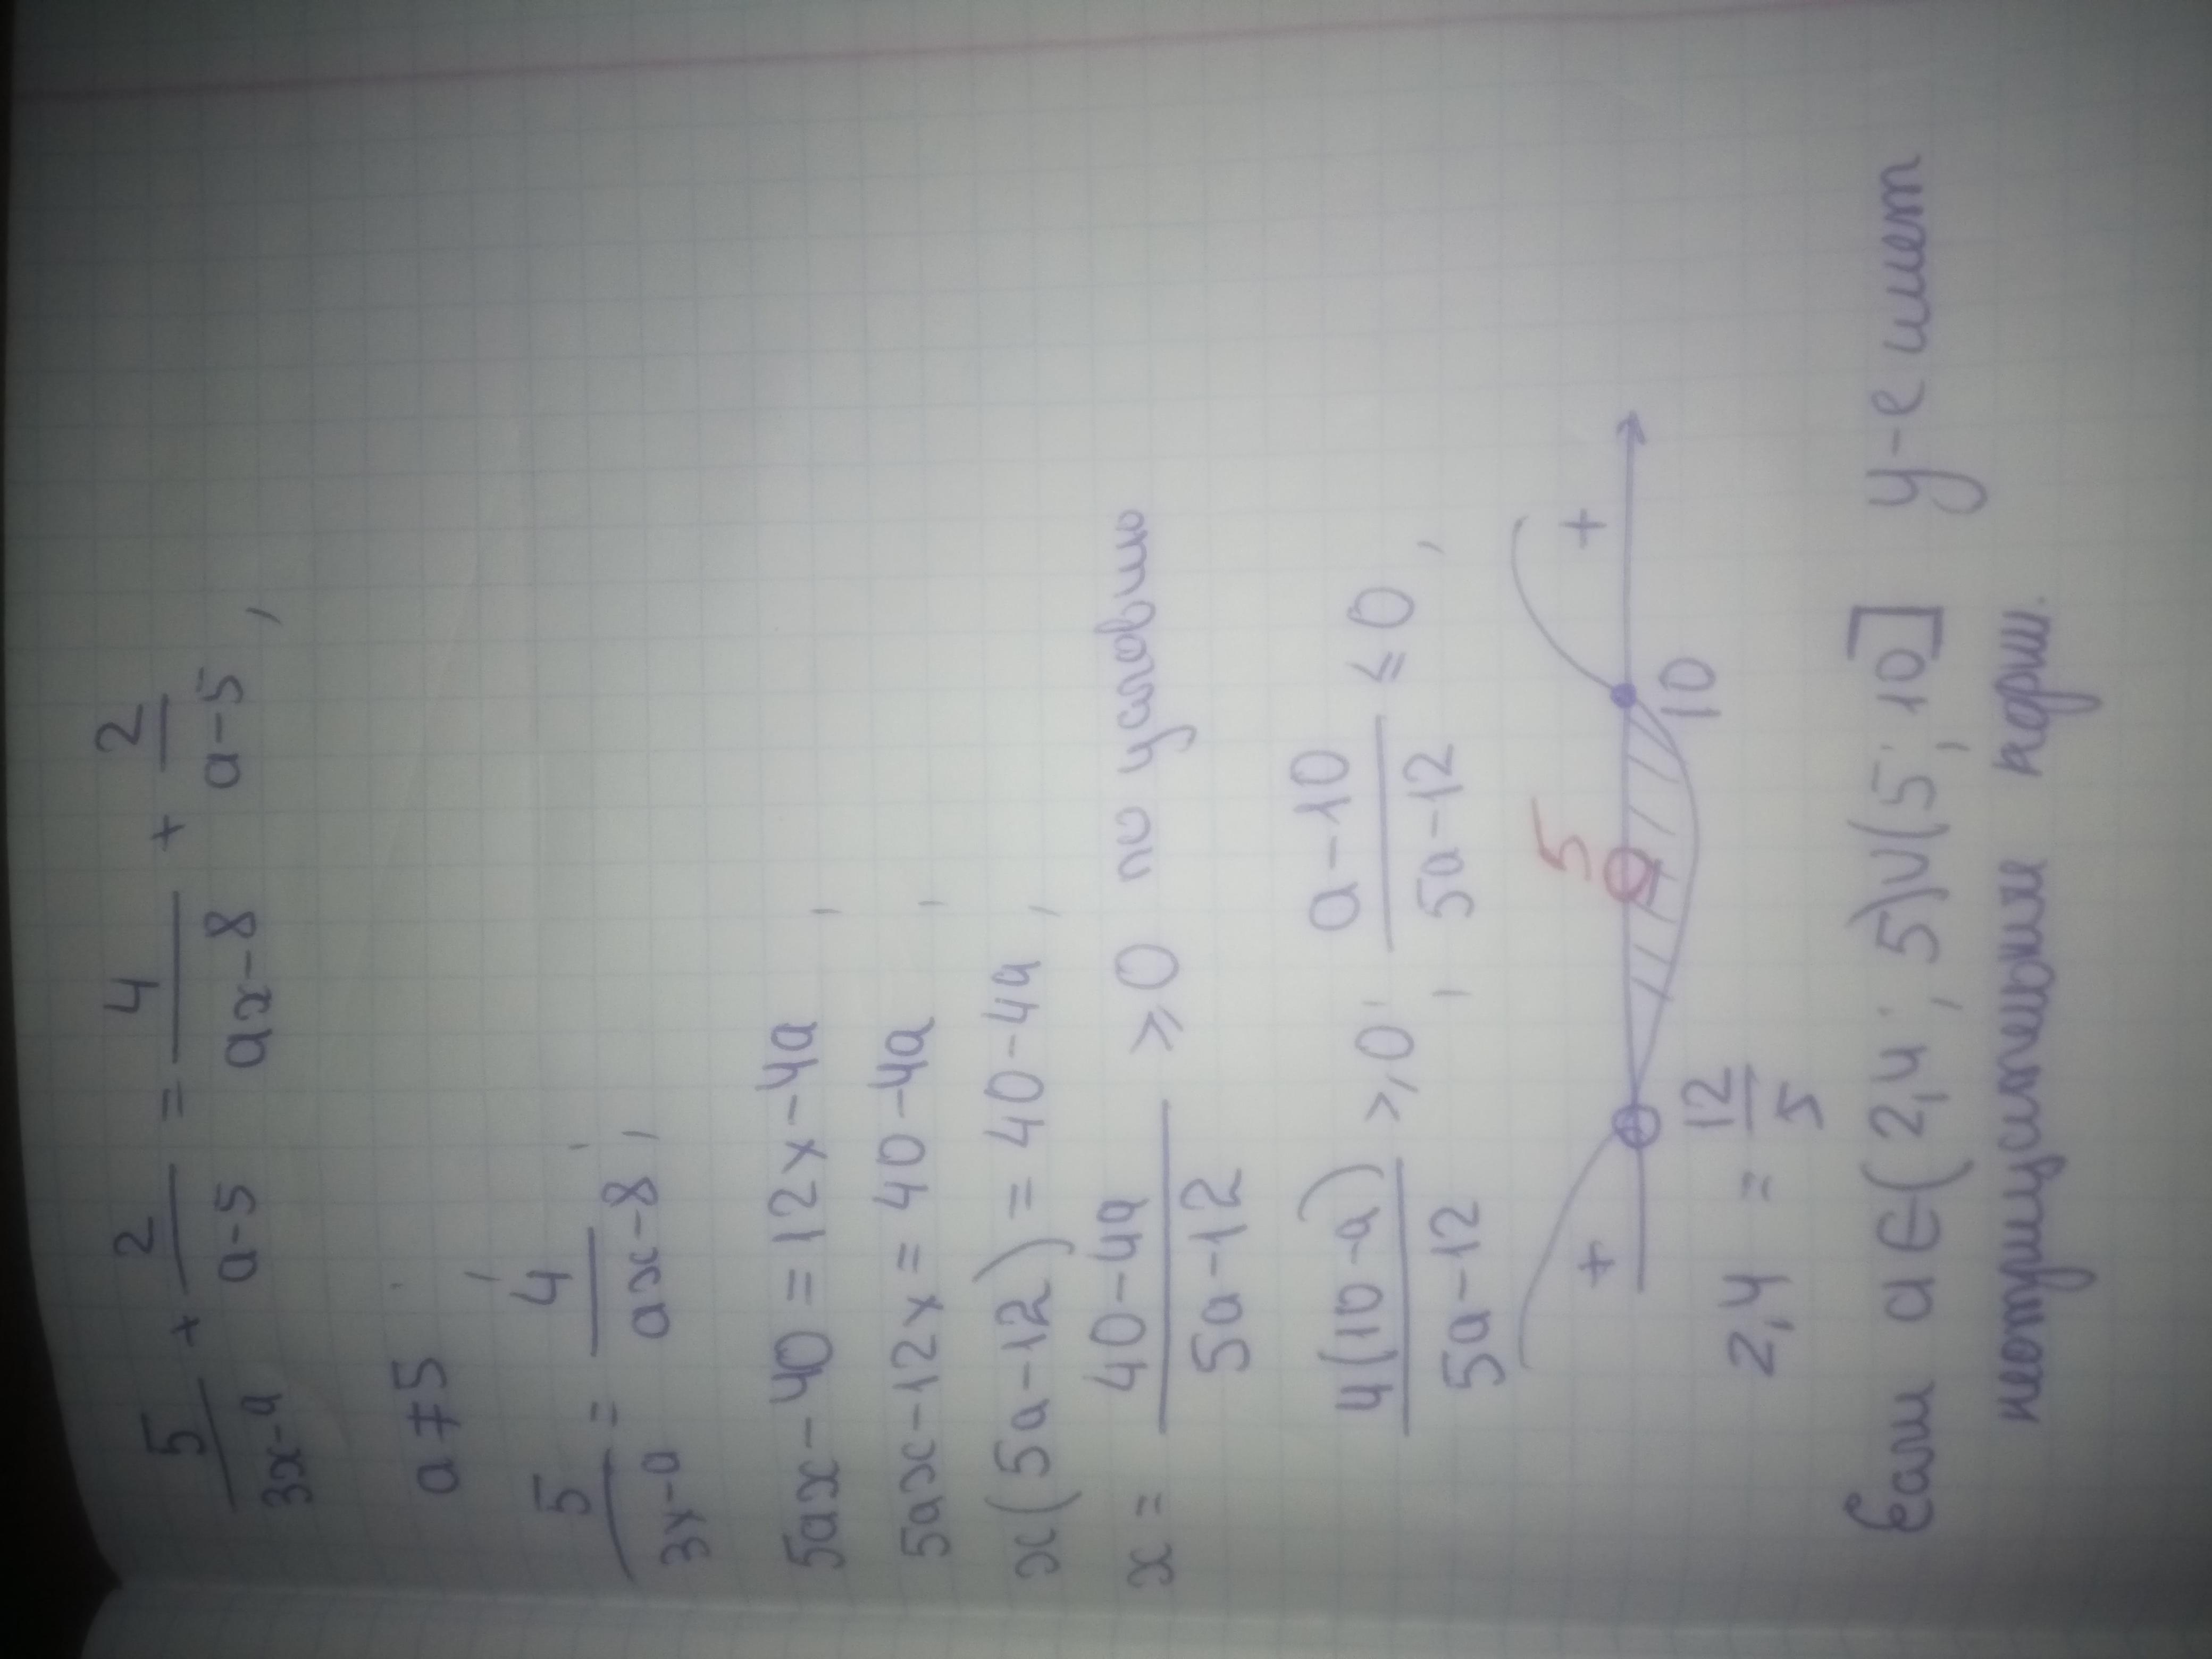 5/(3x-a) + 2/(a-5) = 4/(ax-8) + 2/(a-5) ,
a ≠ 5
5/(3x-a) = 4/(ax-8) ,
5ax - 40 = 12x - 4a ,
5ax - 12x = 40 - 4a ,
x(5a - 12) = 40 - 4a ,
x = (40-4a)/(5a-12) ⩾ 0 по условию
4(10-a)/(5a-12) ⩾ 0 , (a-10)/(5a-12) ≤ 0 ,
+ 5 +
2,4 = 12/5 10
Если a ∈ (2,4 ; 5)∪(5 ; 10] у-е имеет
неотрицательные корни.